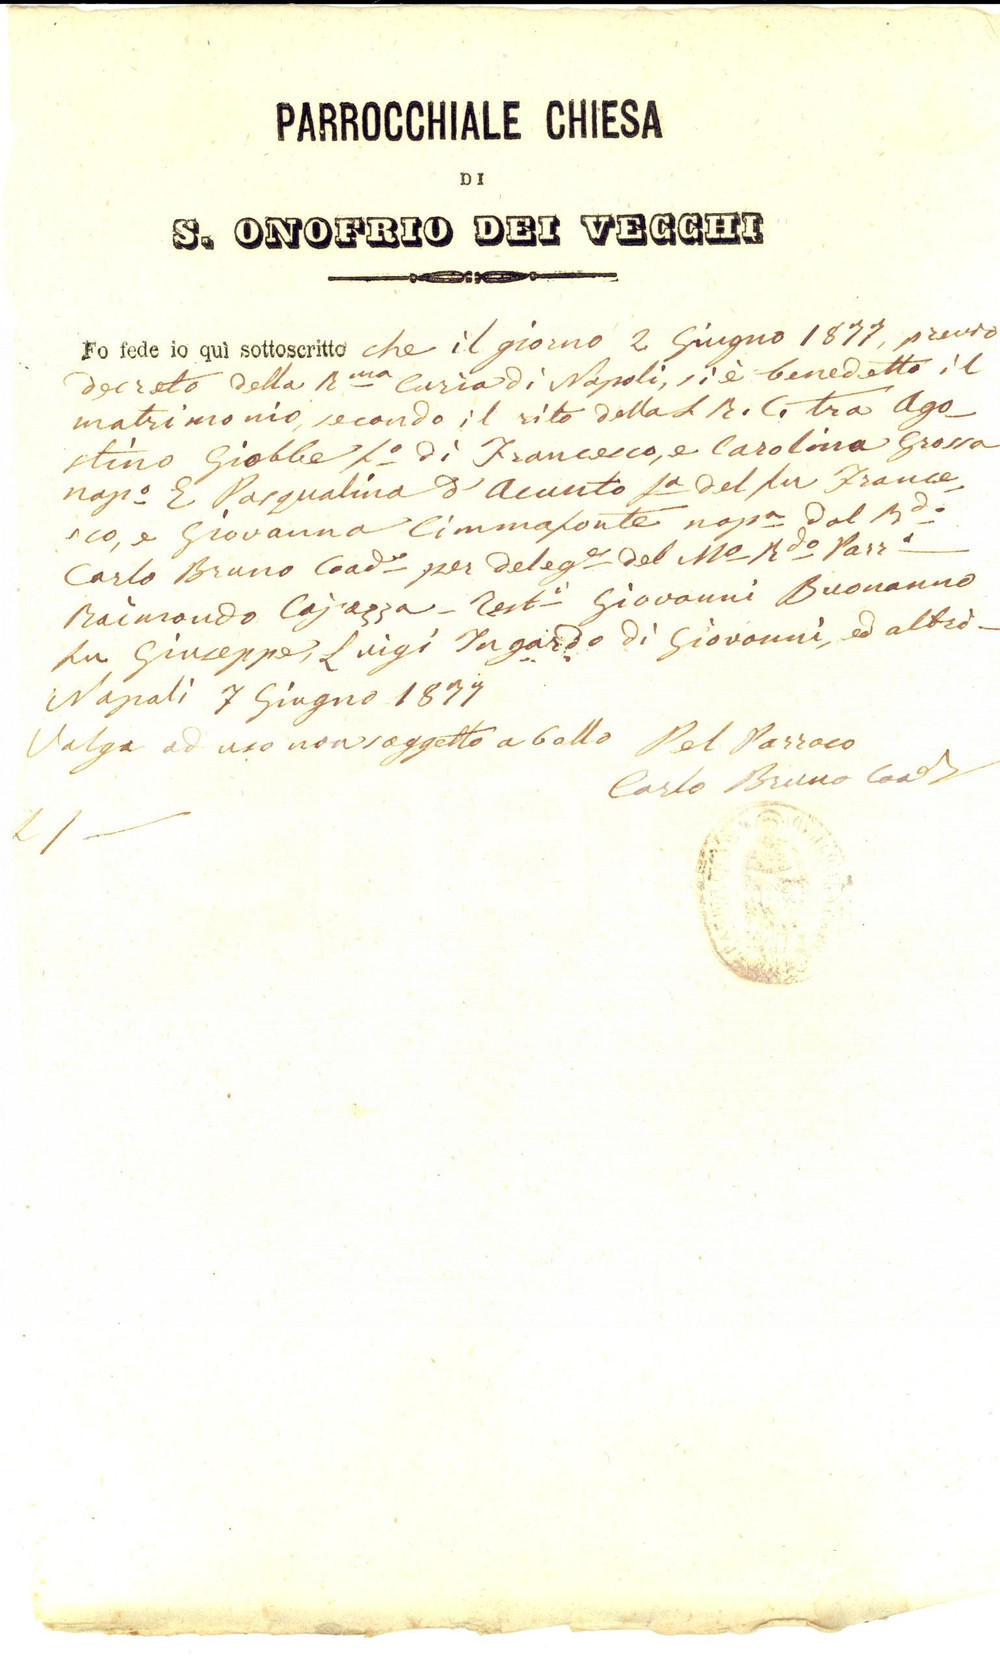 PARROCCHIALE CHIESA
DI
S. ONOFRIO DEI VECCHI
Fo fede io quì sottoscritto che il giorno 2 Giugno 1877, previo
decreto della R.ma Curia di Napoli, si è benedetto il
matrimonio, secondo il rito della S. R. C. tra Ago-
stino Giobbe f.o di Francesco, e Carolina Grossa
nap.o E Pasqualina d'Acunto f.a del fu France-
sco, e Giovanna Cimmafonte nap.a dal R.do
Carlo Bruno Coad.re per deleg.e del M.o R.do Parr.o
Raimondo Cajazza - Test.i Giovanni Buonanno
fu Giuseppe, Luigi Ingardo di Giovanni, ed altri -
Napoli 7 Giugno 1877
Valga ad uso non soggetto a bollo Pel Parroco
Carlo Bruno Coad.re
L 1 —